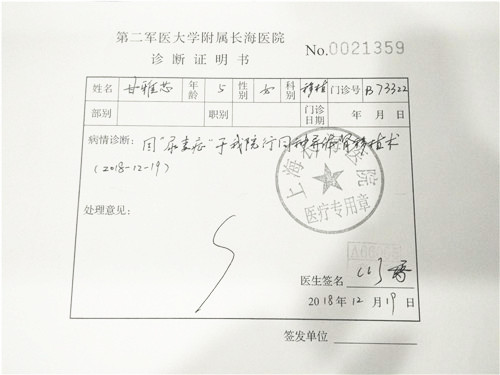 第二军医大学附属长海医院
诊断证明书 No.0021359
姓名 甘雅芯 年龄 5 性别 女 科别 移植 门诊号 B73322
部别 职别 门诊日期 年 月 日
病情诊断: 因"尿毒症"于我院行同种异体肾移植术
(2018-12-19)
上海长海医院
医疗专用章
处理意见:
医生签名
2018年12月19日
签发单位